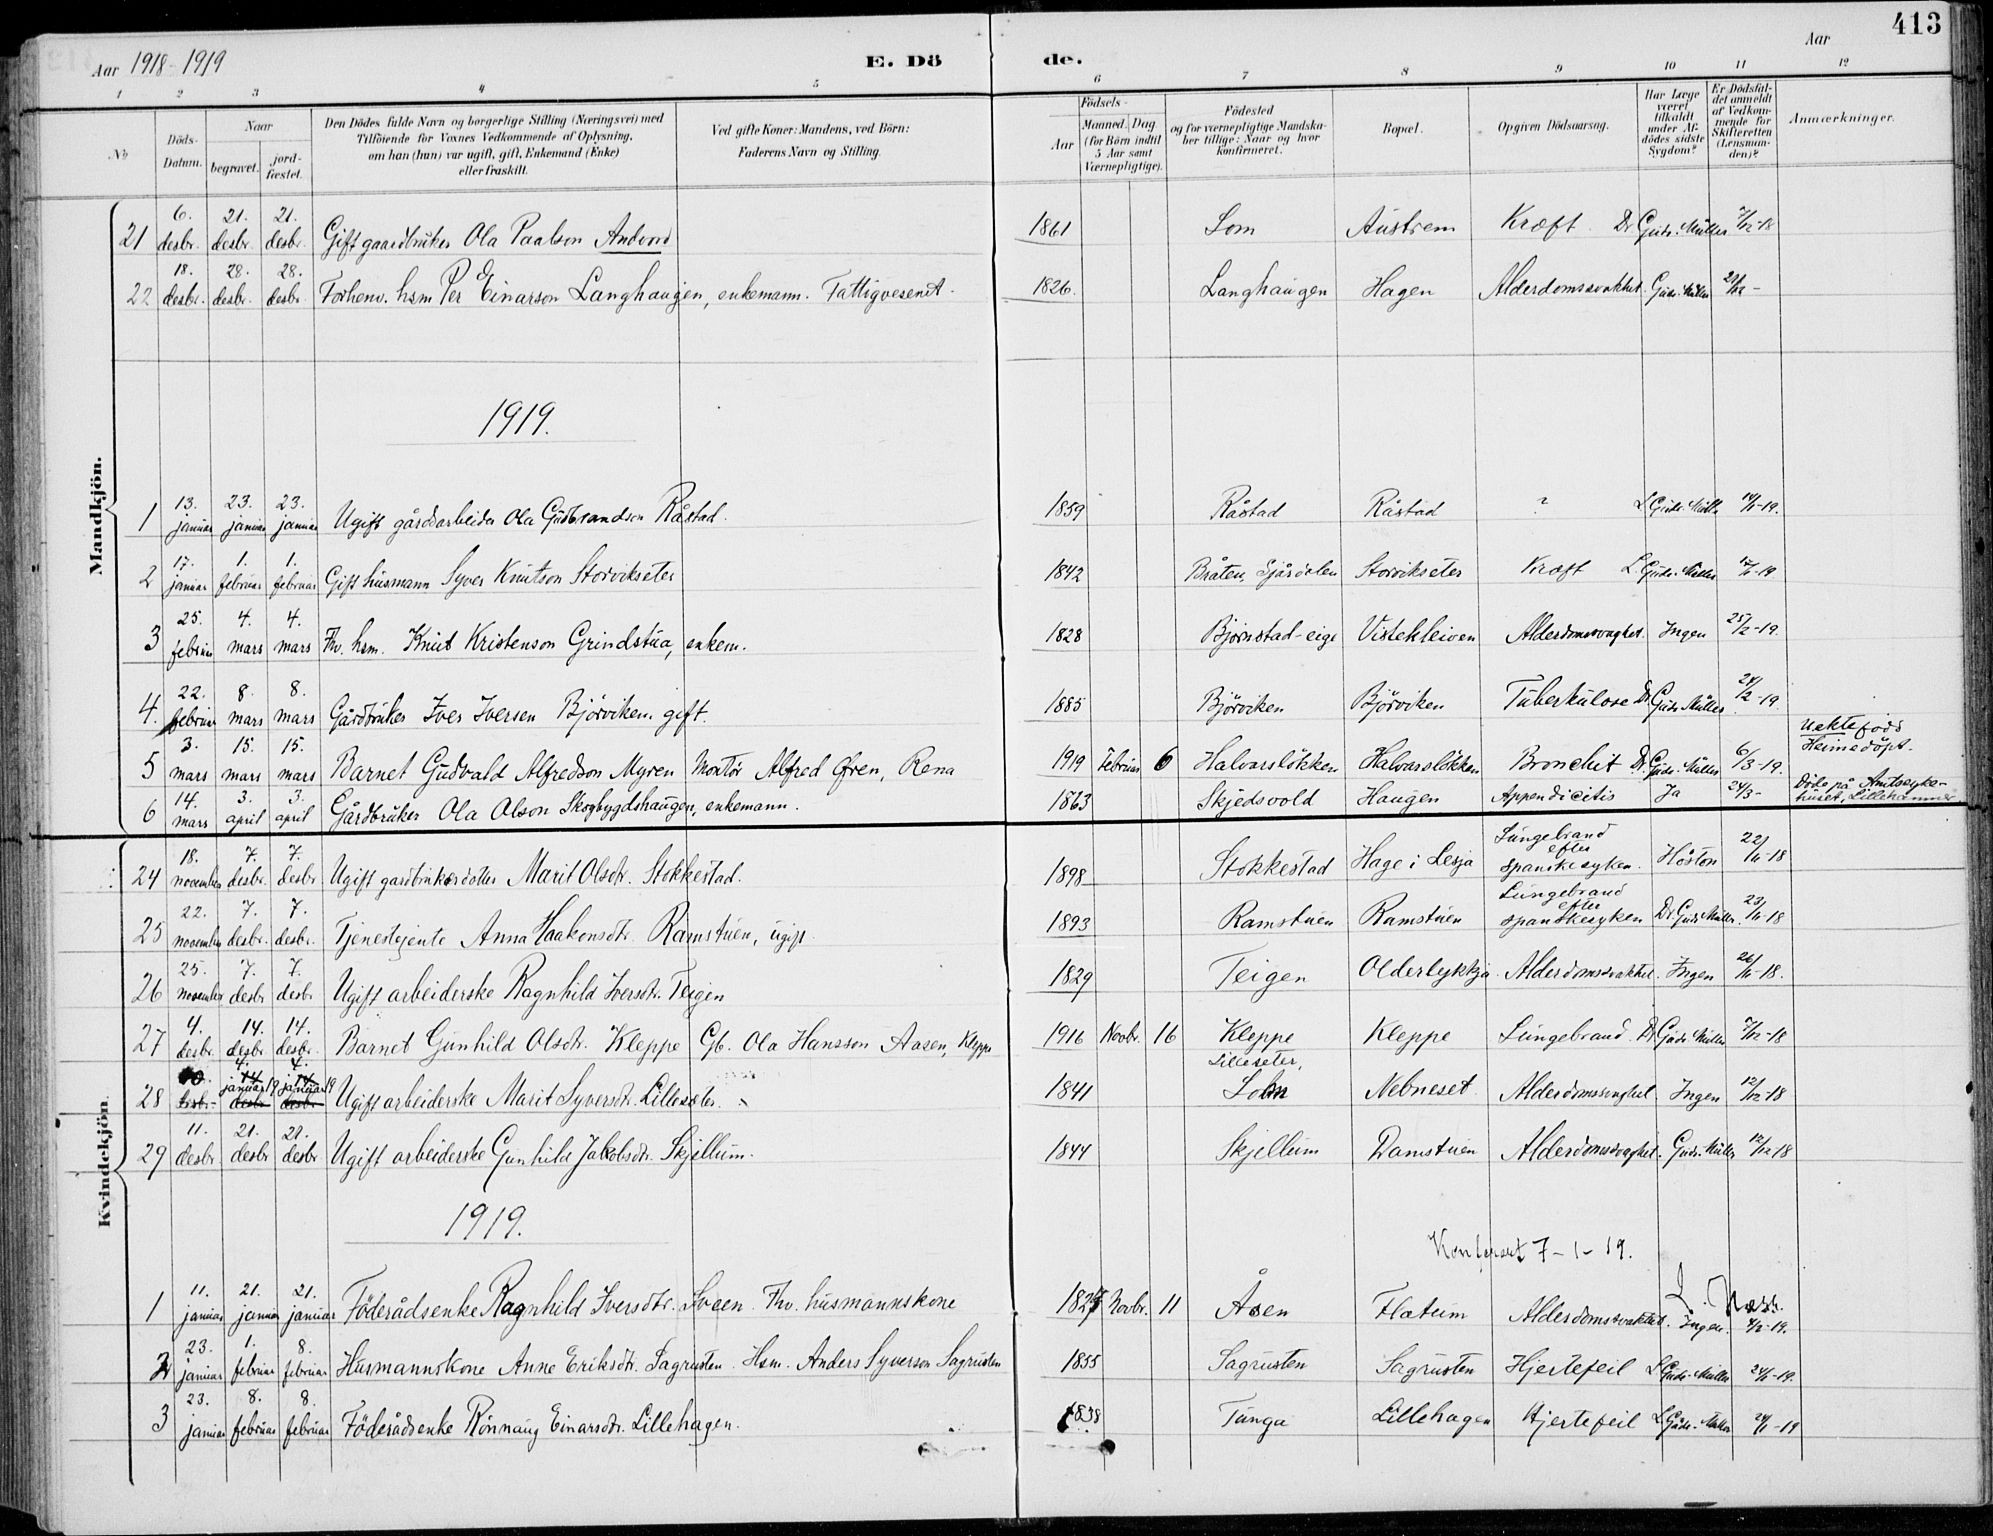 413
Aar 1918-1919
E. Dö de.
Aar
1 2 3 4 5 6 7 8 9 10 11 12
No
Döds-Datum.
Naar
begravet.
jord-fæstet.
Den Dödes fulde Navn og borgerlige Stilling (Næringsvei) med
Tilföiende for Voxnes Vedkommende af Oplysning,
om han (hun) var ugift, gift, Enkemand (Enke)
eller fraskilt.
Ved gifte Koner: Mandens, ved Börn:
Faderens Navn og Stilling.
Födsels-
Aar
Maaned. Dag
(for Börn indtil
5 Aar samt
Værnepligtige).
Födested
og for værnepligtige Mandska-
ber tillige: Naar og hvor
konfirmeret.
Bopæl.
Opgiven Dödsaarsag.
Har Læge
været
tilkaldt
under Af-
dödes sidste
Sygdom?
Er Dödsfal-
det anmeldt
af Vedkom-
mende for
Skifteretten
(Lensman-
den)?
Anmærkninger.
Mandkjön.
21 6. desbr. 21. desbr. 21. desbr. Gift gaardbruker Ola Paalson Andvord 1861 Lom Austrem Kræft Dr Gudr. Müller 7/12-18
22 18. desbr. 28. desbr. 28. desbr. Forhenv. hsm Per Einarson Langhaugen, enkemann. Fattigvesenet. 1826. Langhaugen Hagen Alderdomssvakhet. Gudr. Müller
1919.
1 13. januar 23. januar 23. januar Ugift gårdsarbeider Ola Gudbrandson Råstad. 1859 Råstad Råstad ? L Gudr. Müll. 14/1-19.
2 17. januar 1. februar 1. februar Gift husmann Syver Knutson Storvikseter 1842 Bråten, Sjårdalen Storvikseter Kræft L Gudr. Müller
3 25. februar 4. mars 4. mars Fhv. hsm. Knut Kristenson Grindstua, enkem. 1828 Bjørnstad-eige Vistekleiven Alderdomssvaghet. Ingen 25/2-19.
4. 22. februar 8. mars 8. mars Gårdbruker Iver Iversen Bjørviken. gift. 1885 Bjørviken Bjørviken Tuberkulose Dr. Gudr. Müller 24/2-19.
5 3. mars 15. mars 15. mars Barnet Gudvald Alfredson Myren Montör Alfred Øren, Rena 1919 Februar 6 Halvarsløkken Halvarsløkken Bronchit Dr. Gudr. Müller 6/3-19. Uektefødt Heimedöpt.
6 14. mars 3. april 3. april Gårdbruker Ola Olson Skogbygdshaugen, enkemann. 1863 Skjedsvold Haugen Appendicitis Ja 24/3- Döde på Amtssyke-huset, Lillehammer
Kvindekjön.
24 18. november 7. desbr. 7. desbr. Ugift gardbrukerdotter Marit Olsdtr. Stokkestad. 1898 Stokkestad Hage i Lesja Lungebrand efter spanskesyken. Høston 22/11-18
25 22. november 7. desbr. 7. desbr. Tjenestejente Anna Haakonsdtr. Ramstuen, ugift. 1893 Ramstuen Ramstuen Lungebrand efter spanskesyken Dr. Gudr. Müller. 23/11-18
26 25. november 7. desbr 7. desbr Ugift arbeiderske Ragnhild Iversdtr. Teigen 1829 Teigen Olderlykkja Alderdomssvakhet. Ingen 26/11-18.
27 4. desbr. 14. desbr 14. desbr. Barnet Gunhild Olsdtr. Kleppe Gb. Ola Hansson Aasen, Kleppe 1916 Novbr. 16 Kleppe Kleppe Lungebrand. Dr. Gudr. Müller 7/12-18
28 10. desbr. 4. januar 19 4. januar 19 Ugift arbeiderske Marit Syversdtr. Lilleseter. 1841 Lilleseter, Lom Nebneset Alderdomssvaghet. Ingen 12/12-18
29 11. desbr 21. desbr 21. desbr Ugift arbeiderske Gunhild Jakobsdtr. Skjellum. 1844 Skjellum Ramstuen Alderdomssvaghet. Gudr. Müller 12/12-18
1919.
7-1-19.
1 11. januar 21. januar 21. januar Föderådsenke Ragnhild Iversdtr. Sveen. Fhv. husmannskone Novbr. 11 Åsen Flatum Alderdomssvakhet. Ingen.
2 23. januar 1. februar 8. februar Husmannskone Anne Eriksdtr. Sagrusten. Hsm. Anders Syverson Sagrusten 1855 Sagrusten Sagrusten Hjertefeil L Gudr. Müller 24/1-19.
3 23. januar 8. februar 8. februar Föderådsenke Rönnaug Einarsdtr. Lillehagen. 1838 Tunga Lillehagen Hjertefeil L Gudr. Müller 24/1-19